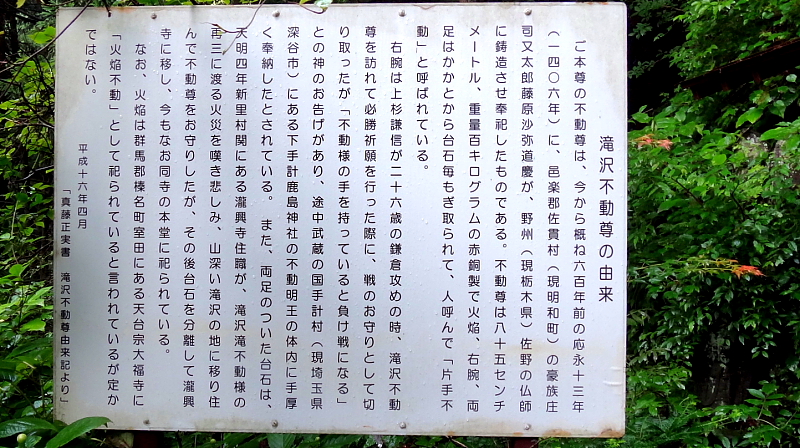 滝沢不動尊の由来
ご本尊の不動尊は、今から概ね六百年前の応永十三年
(一四〇六年)に、邑楽郡佐貫村(現明和町)の豪族庄
司又太郎藤原沙弥道慶が、野州(現栃木県)佐野の仏師
に鋳造させ奉祀したものである。不動尊は八十五センチ
メートル、重量百キログラムの赤銅製で火焔、右腕、両
足はかかとから台石毎もぎ取られて、人呼んで「片手不
動」と呼ばれている。
右腕は上杉謙信が二十六歳の鎌倉攻めの時、滝沢不動
尊を訪れて必勝祈願を行った際に、戦のお守りとして切
り取ったが「不動様の手を持っていると負け戦になる」
との神のお告げがあり、途中武蔵の国手計村(現埼玉県
深谷市)にある下手計鹿島神社の不動明王の体内に手厚
く奉納したとされている。また、両足のついた台石は、
天明四年新里村関にある瀧興寺住職が、滝沢滝不動様の
再三に渡る火災を嘆き悲しみ、山深い滝沢の地に移り住
んで不動尊をお守りしたが、その後台石を分離して瀧興
寺に移し、今もなお同寺の本堂に祀られている。
なお、火焔は群馬郡榛名町室田にある天台宗大福寺に
「火焔不動」として祀られていると言われているが定か
ではない。
平成十六年四月
「真藤正実書 滝沢不動尊由来記より」